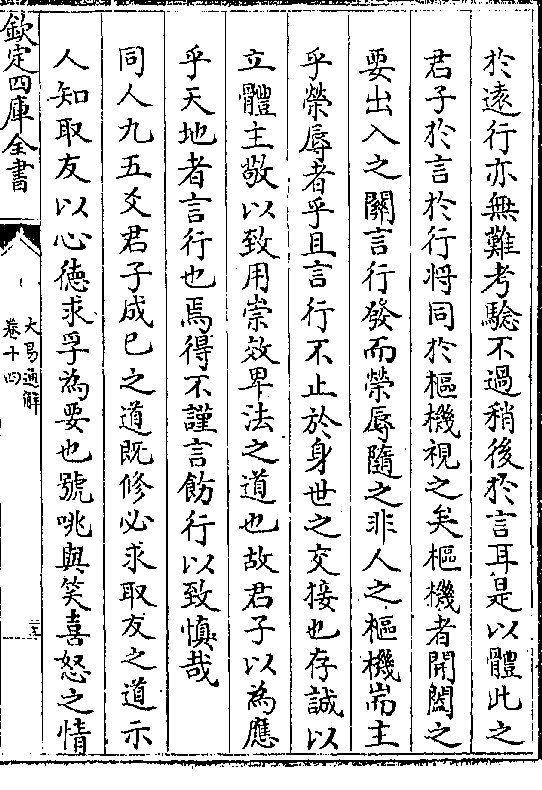 於逺行亦無難考驗不過稍後於言耳是以體此之
君子於言於行將同於樞機視之矣樞機者開闔之
要出入之關言行發而榮辱隨之非人之樞機耑主
乎榮辱者乎且言行不止於身世之交接也存誠以
立體主敬以致用崇效卑法之道也故君子以為應
乎天地者言行也焉得不謹言飭行以致慎哉
同人九五爻君子成已之道既修必求取友之道示
人知取友以心德求孚為要也號咷與笑喜怒之情
欽定四庫全書
大易通解
卷十四